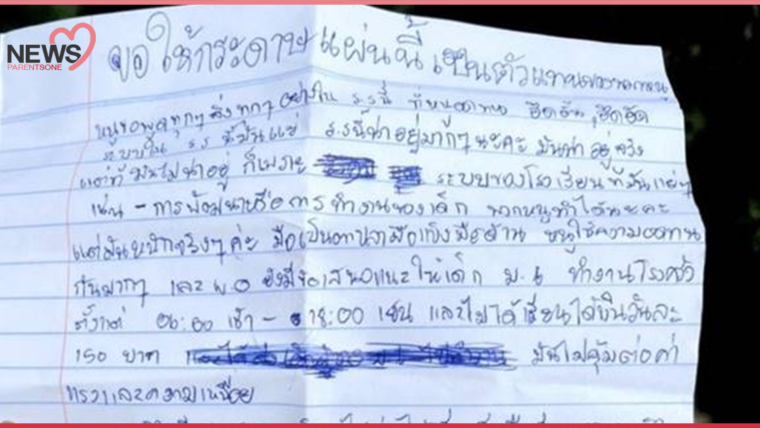 NEWS
PARENTSONE
ขอให้กระดาษแผ่นนี้เป็นตัวแทนของพวกหนู
หนูขอพูดทุกๆสิ่งทุกๆอย่างใน ร.ร นี้ ที่หนูอดทน อึดอั้น, อึดอัด
ระบบใน ร.ร นี้มันแย่ ร.ร นี้น่าอยู่มากๆนะคะ มันน่าอยู่จริง
แต่ที่มันไม่น่าอยู่ ก็เพราะ ระบบของโรงเรียนที่มันแย่ๆ
เช่น - การพัฒนาหรือการทำงานของเด็ก พวกหนูทำได้นะคะ
แต่มันหนักจริงๆค่ะ มือเป็นตาปลามือแข็งมือด้าน หนูใช้ความอดทน
กันมากๆ และ ผ.อ ยังมีข้อเสนอแนะให้เด็ก ม.4 ทำงานโรงครัว
ตั้งแต่ 06:00 เช้า - 18:00 เย็น และไม่ได้เรียนได้เงินวันละ
150 บาท มันไม่คุ้มต่อค่า
แรงและความเหนื่อย